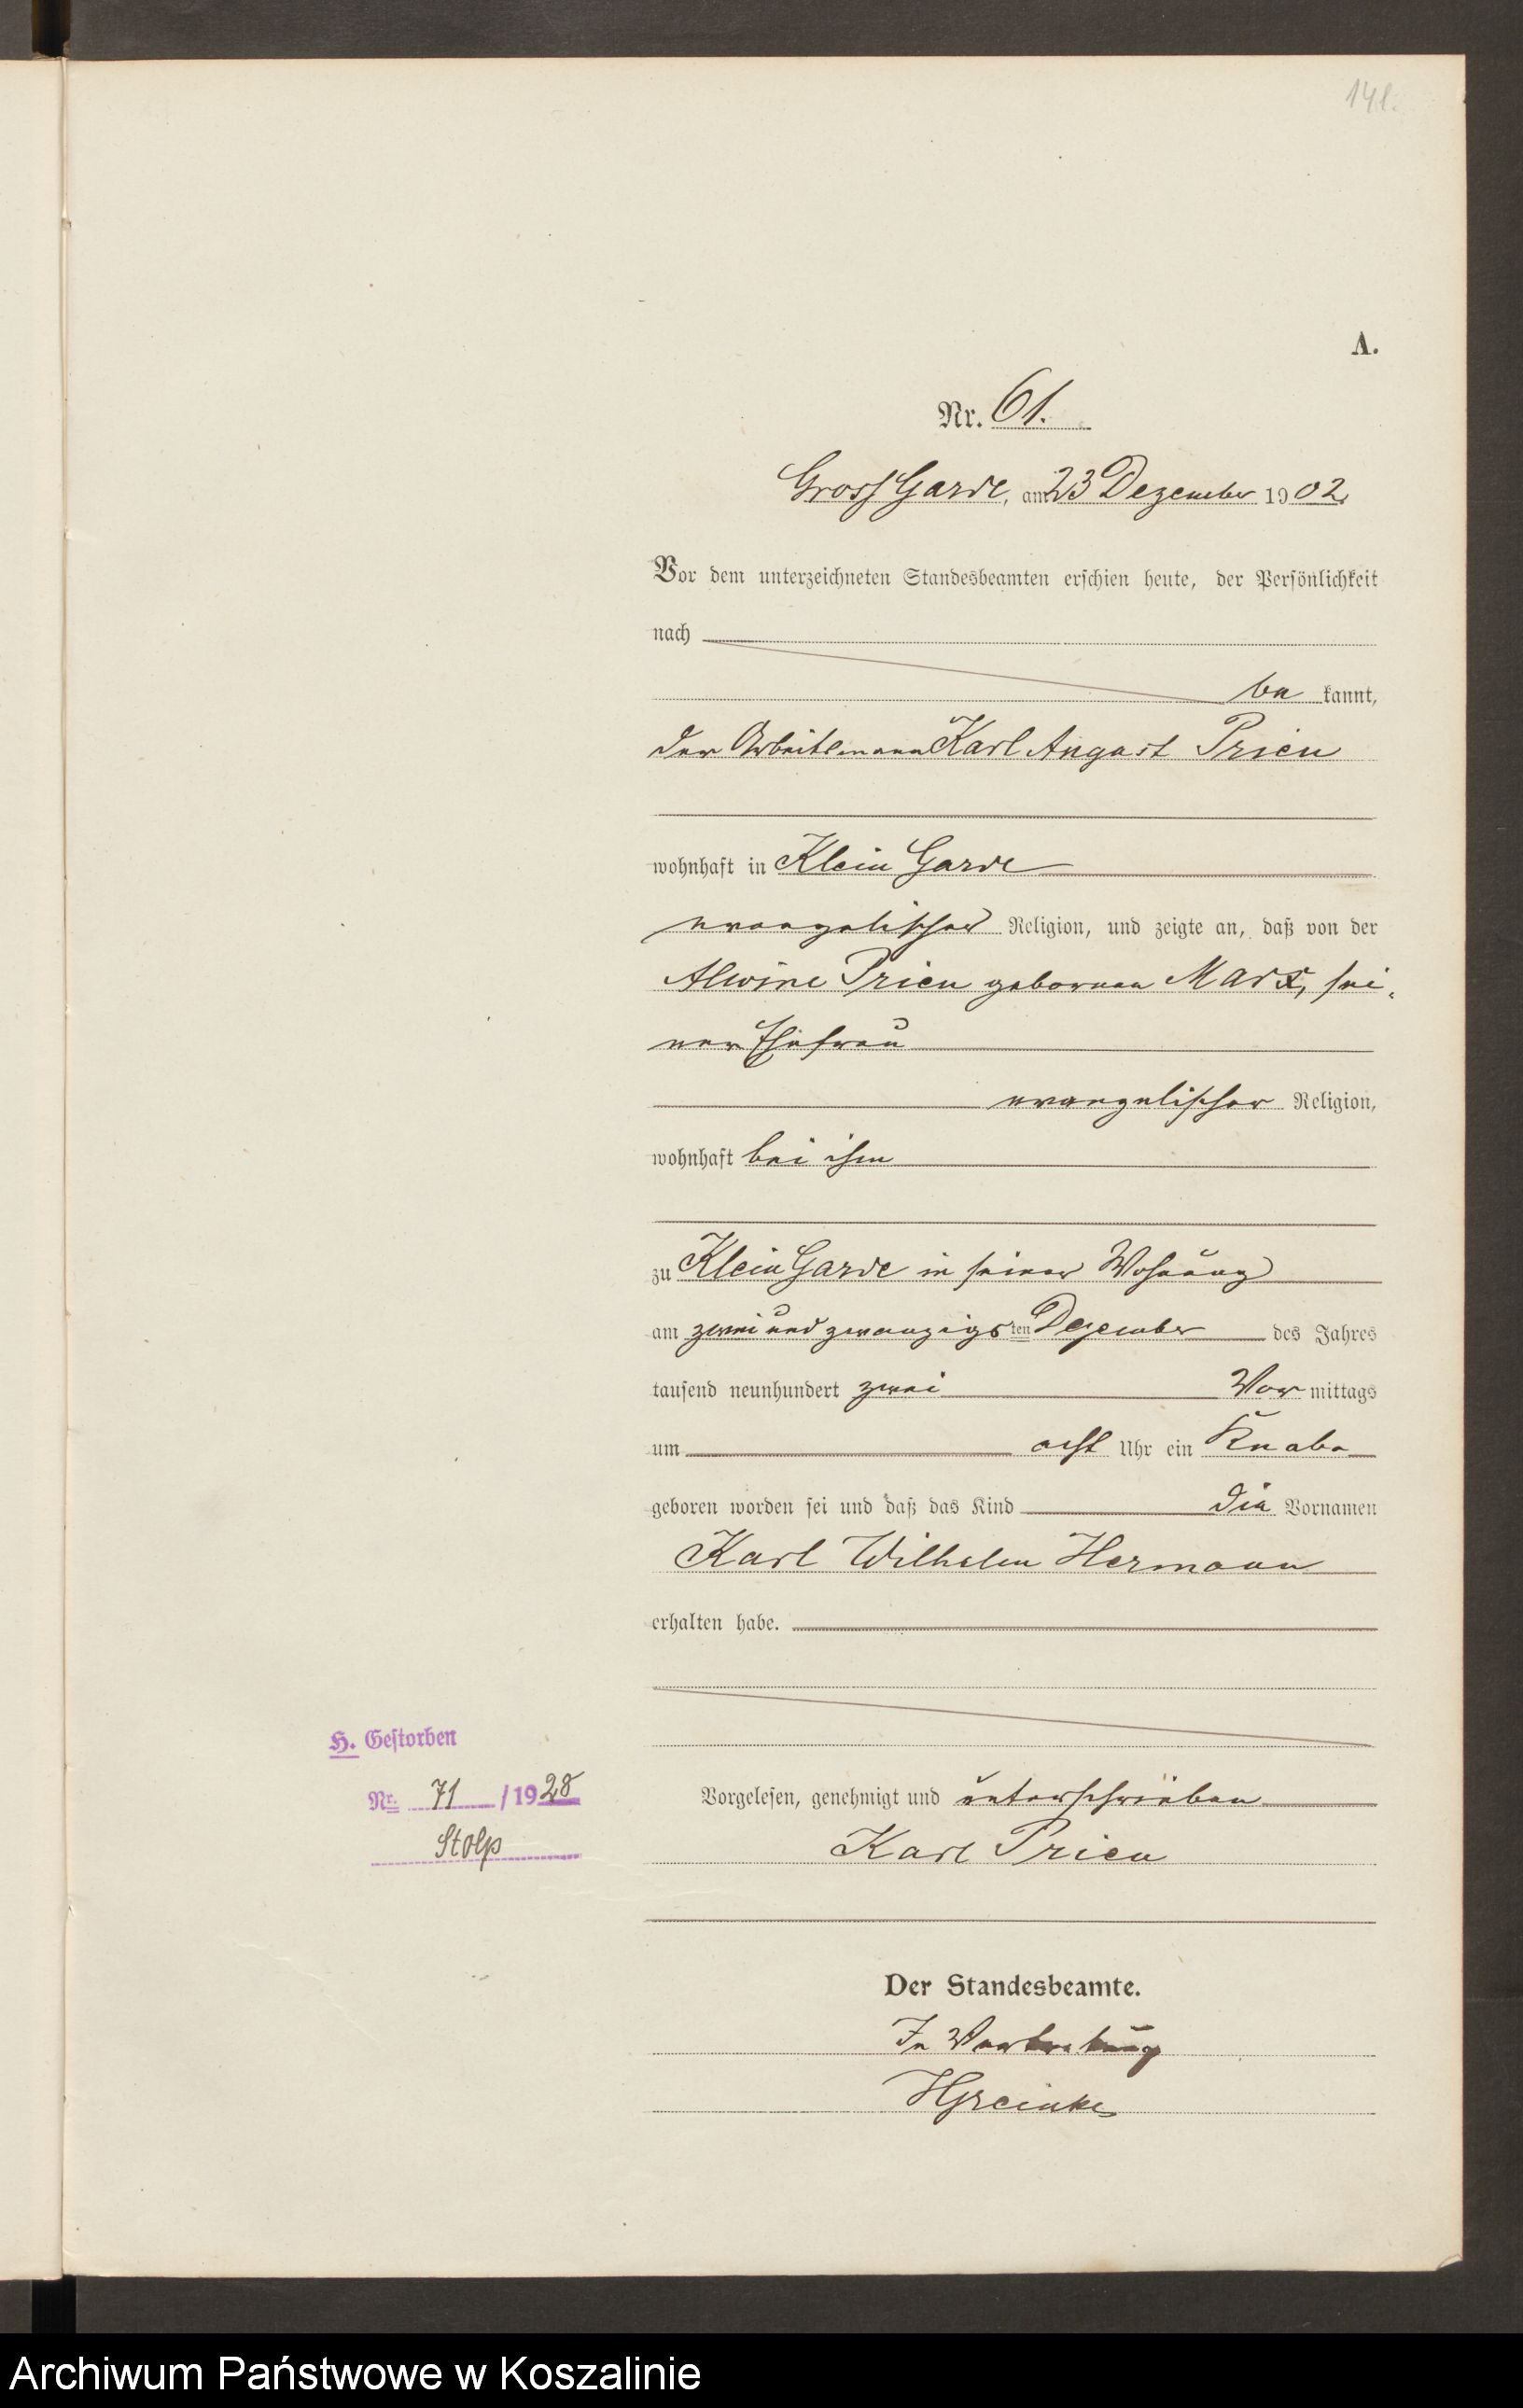 141.
A.
Nr. 61.
Gross Garde, am 23 Dezember 1902.
Vor dem unterzeichneten Standesbeamten erschien heute, der Persönlichkeit
nach
be kannt,
der Arbeitsmann Karl August Prien
wohnhaft in Klein Garde
evangelischer Religion, und zeigte an, daß von der
Alwine Prien geborenen Marx, sei-
ner Ehefrau
evangelischer Religion,
wohnhaft bei ihm
zu Klein Garde in seiner Wohnung
am zwei und zwanzigsten Dezember des Jahres
tausend neunhundert zwei Vor mittags
um acht Uhr ein Knabe
geboren worden sei und daß das Kind die Vornamen
Karl Wilhelm Hermann
erhalten habe.
H. Gestorben
Nr. 71 / 1928
Stolp
Vorgelesen, genehmigt und unterschrieben
Karl Prien
Der Standesbeamte.
In Vertretung
Archiwum Państwowe w Koszalinie